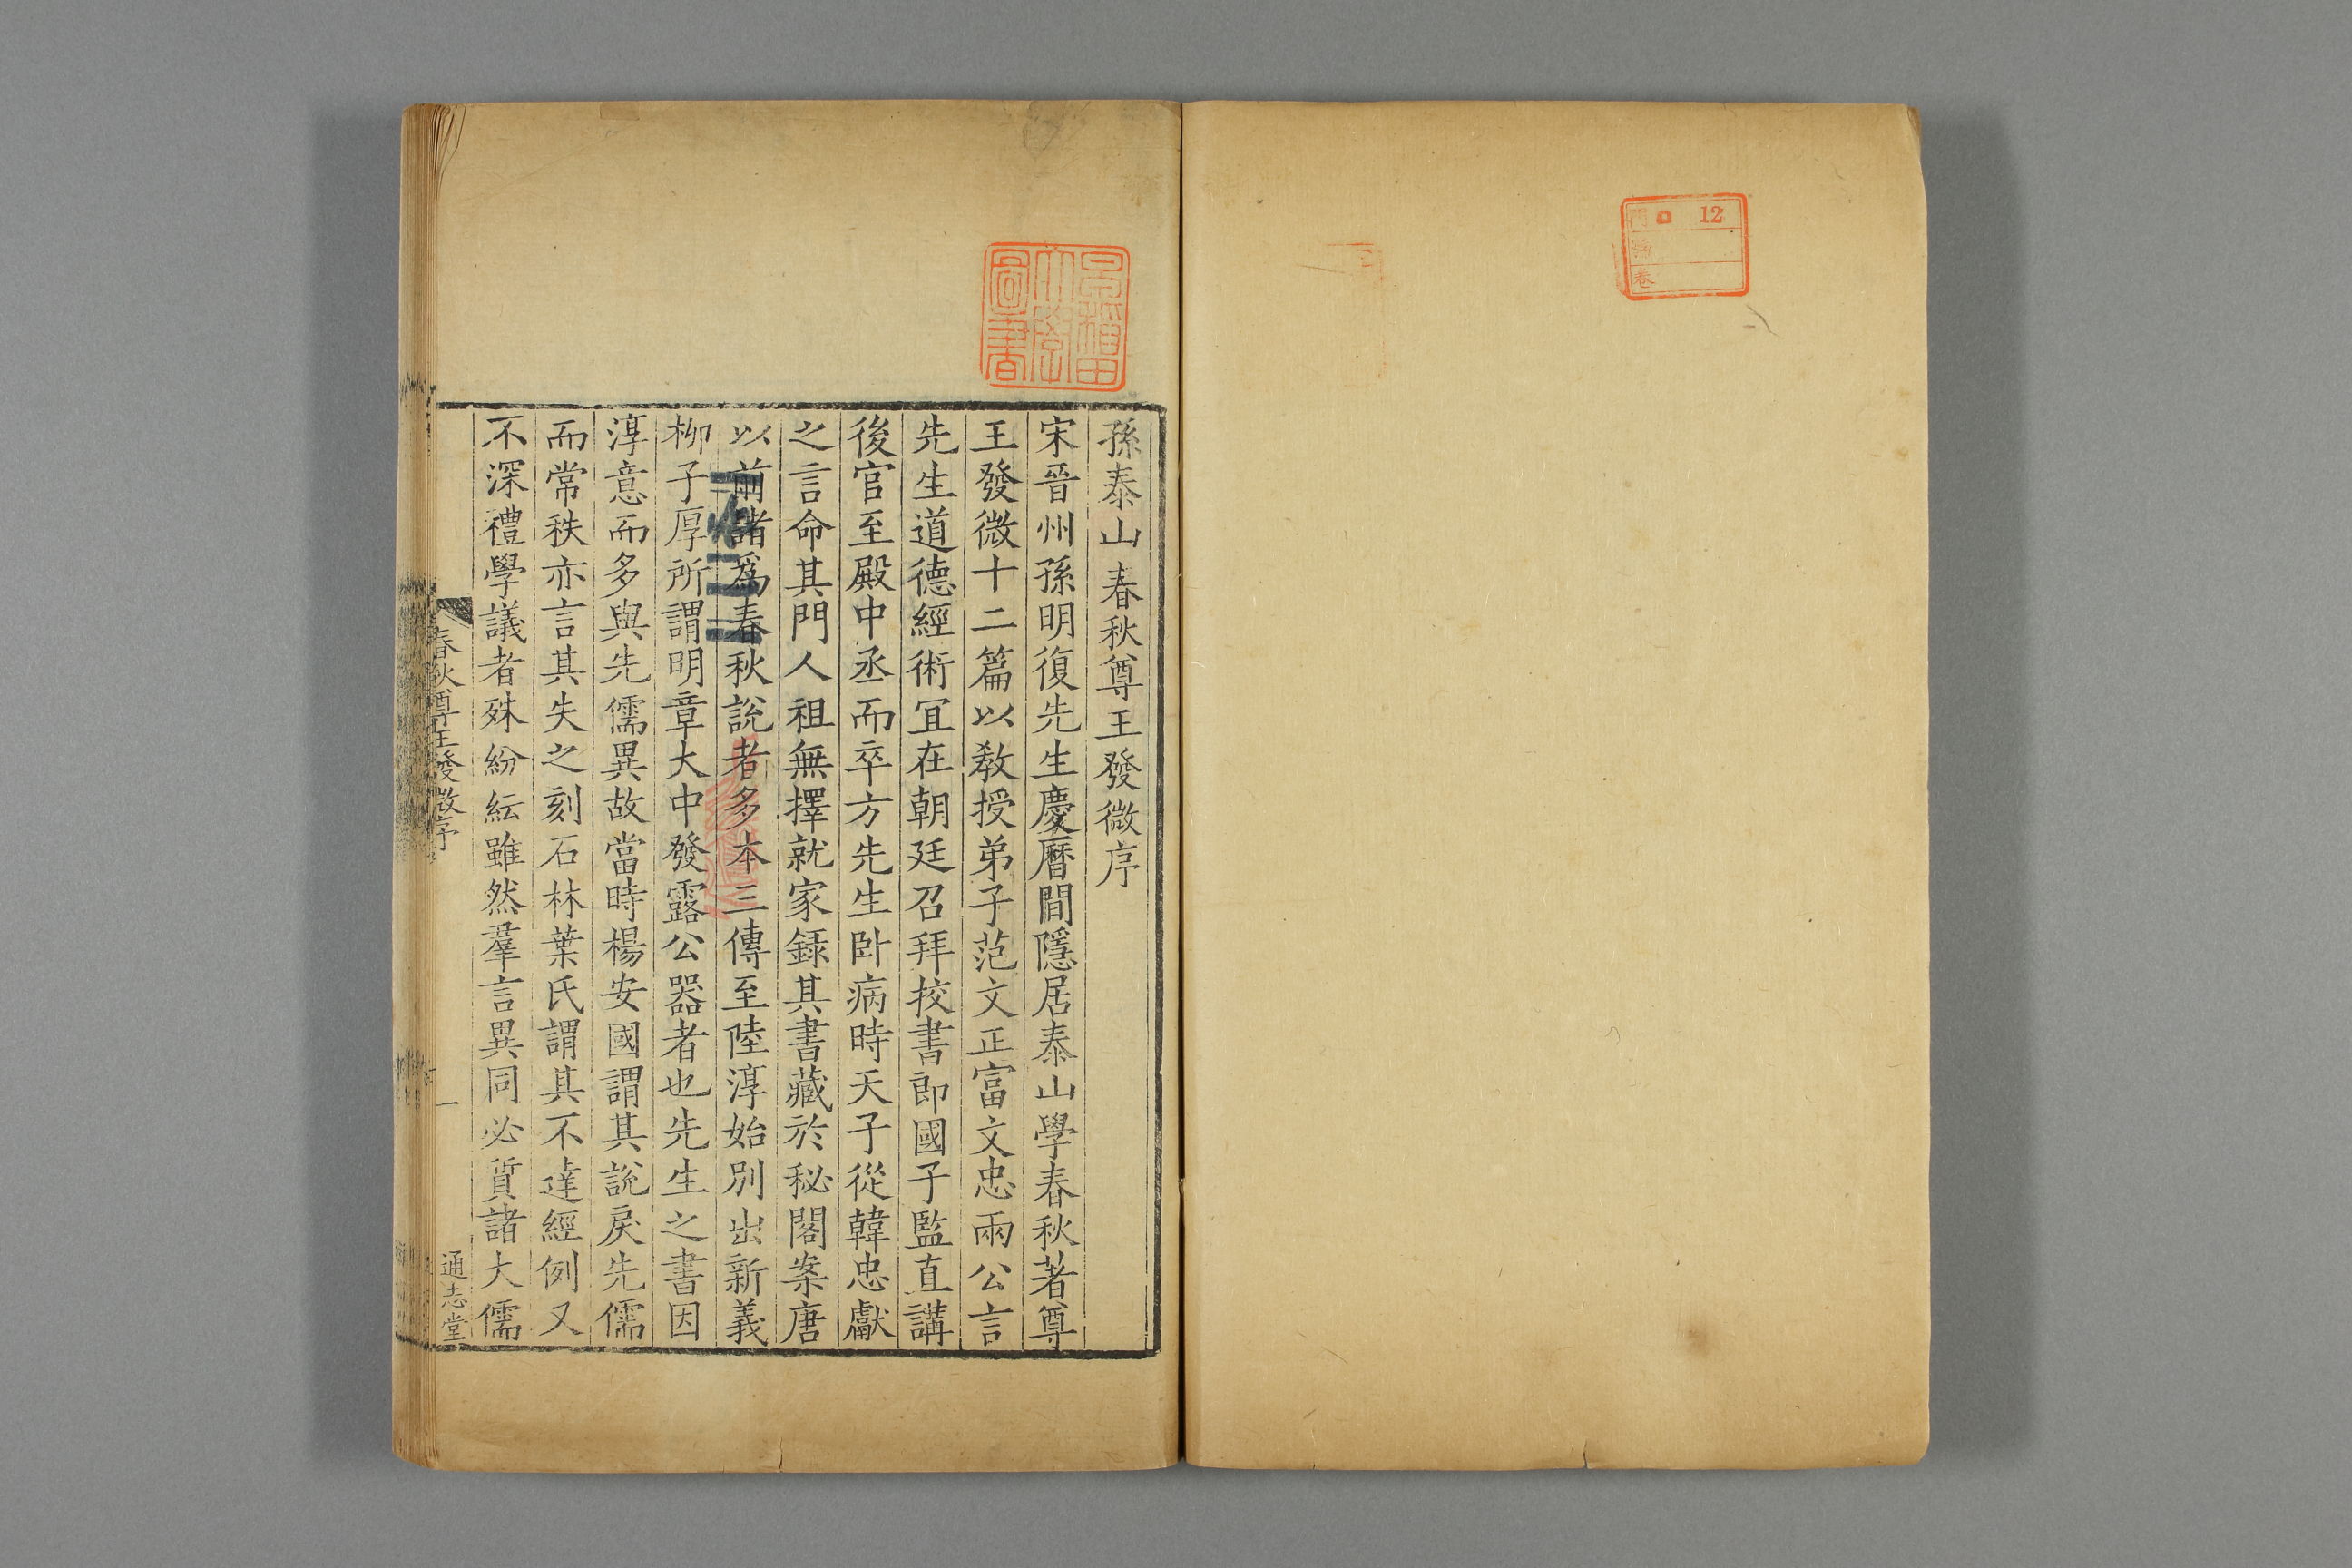 門 12
號
卷
早稲田
大學
圖書
孫泰山春秋尊王發微序
宋晉州孫明復先生慶曆間隱居泰山學春秋著尊
王發微十二篇以敎授弟子范文正富文忠兩公言
先生道德經術宜在朝廷召拜挍書郎國子監直講
後官至殿中丞而卒方先生卧病時天子從韓忠獻
之言命其門人祖無擇就家錄其書藏於秘閣案唐
以前諸爲春秋說者多本三傳至陸淳始別出新義
柳子厚所謂明章大中發露公器者也先生之書因
淳意而多與先儒異故當時楊安國謂其說戾先儒
而常秩亦言其失之刻石林葉氏謂其不達經例又
不深禮學議者殊紛紜雖然羣言異同必質諸大儒
春秋尊王發微序
一
通志堂